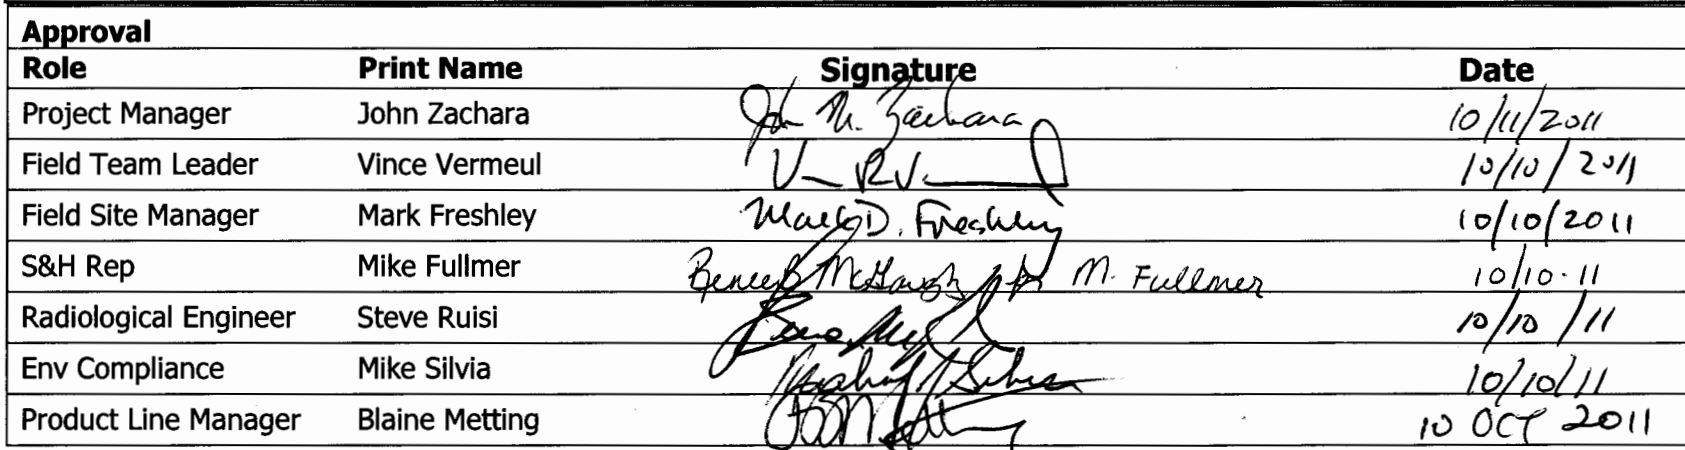 Approval
Role Print Name Signature Date
Project Manager John Zachara John M. Zachara 10/11/2011
Field Team Leader Vince Vermeul 10/10/2011
Field Site Manager Mark Freshley Mark D. Freshley 10/10/2011
S&H Rep Mike Fullmer M. Fullmer 10/10-11
Radiological Engineer Steve Ruisi 10/10/11
Env Compliance Mike Silvia 10/10/11
Product Line Manager Blaine Metting 10 OCT 2011